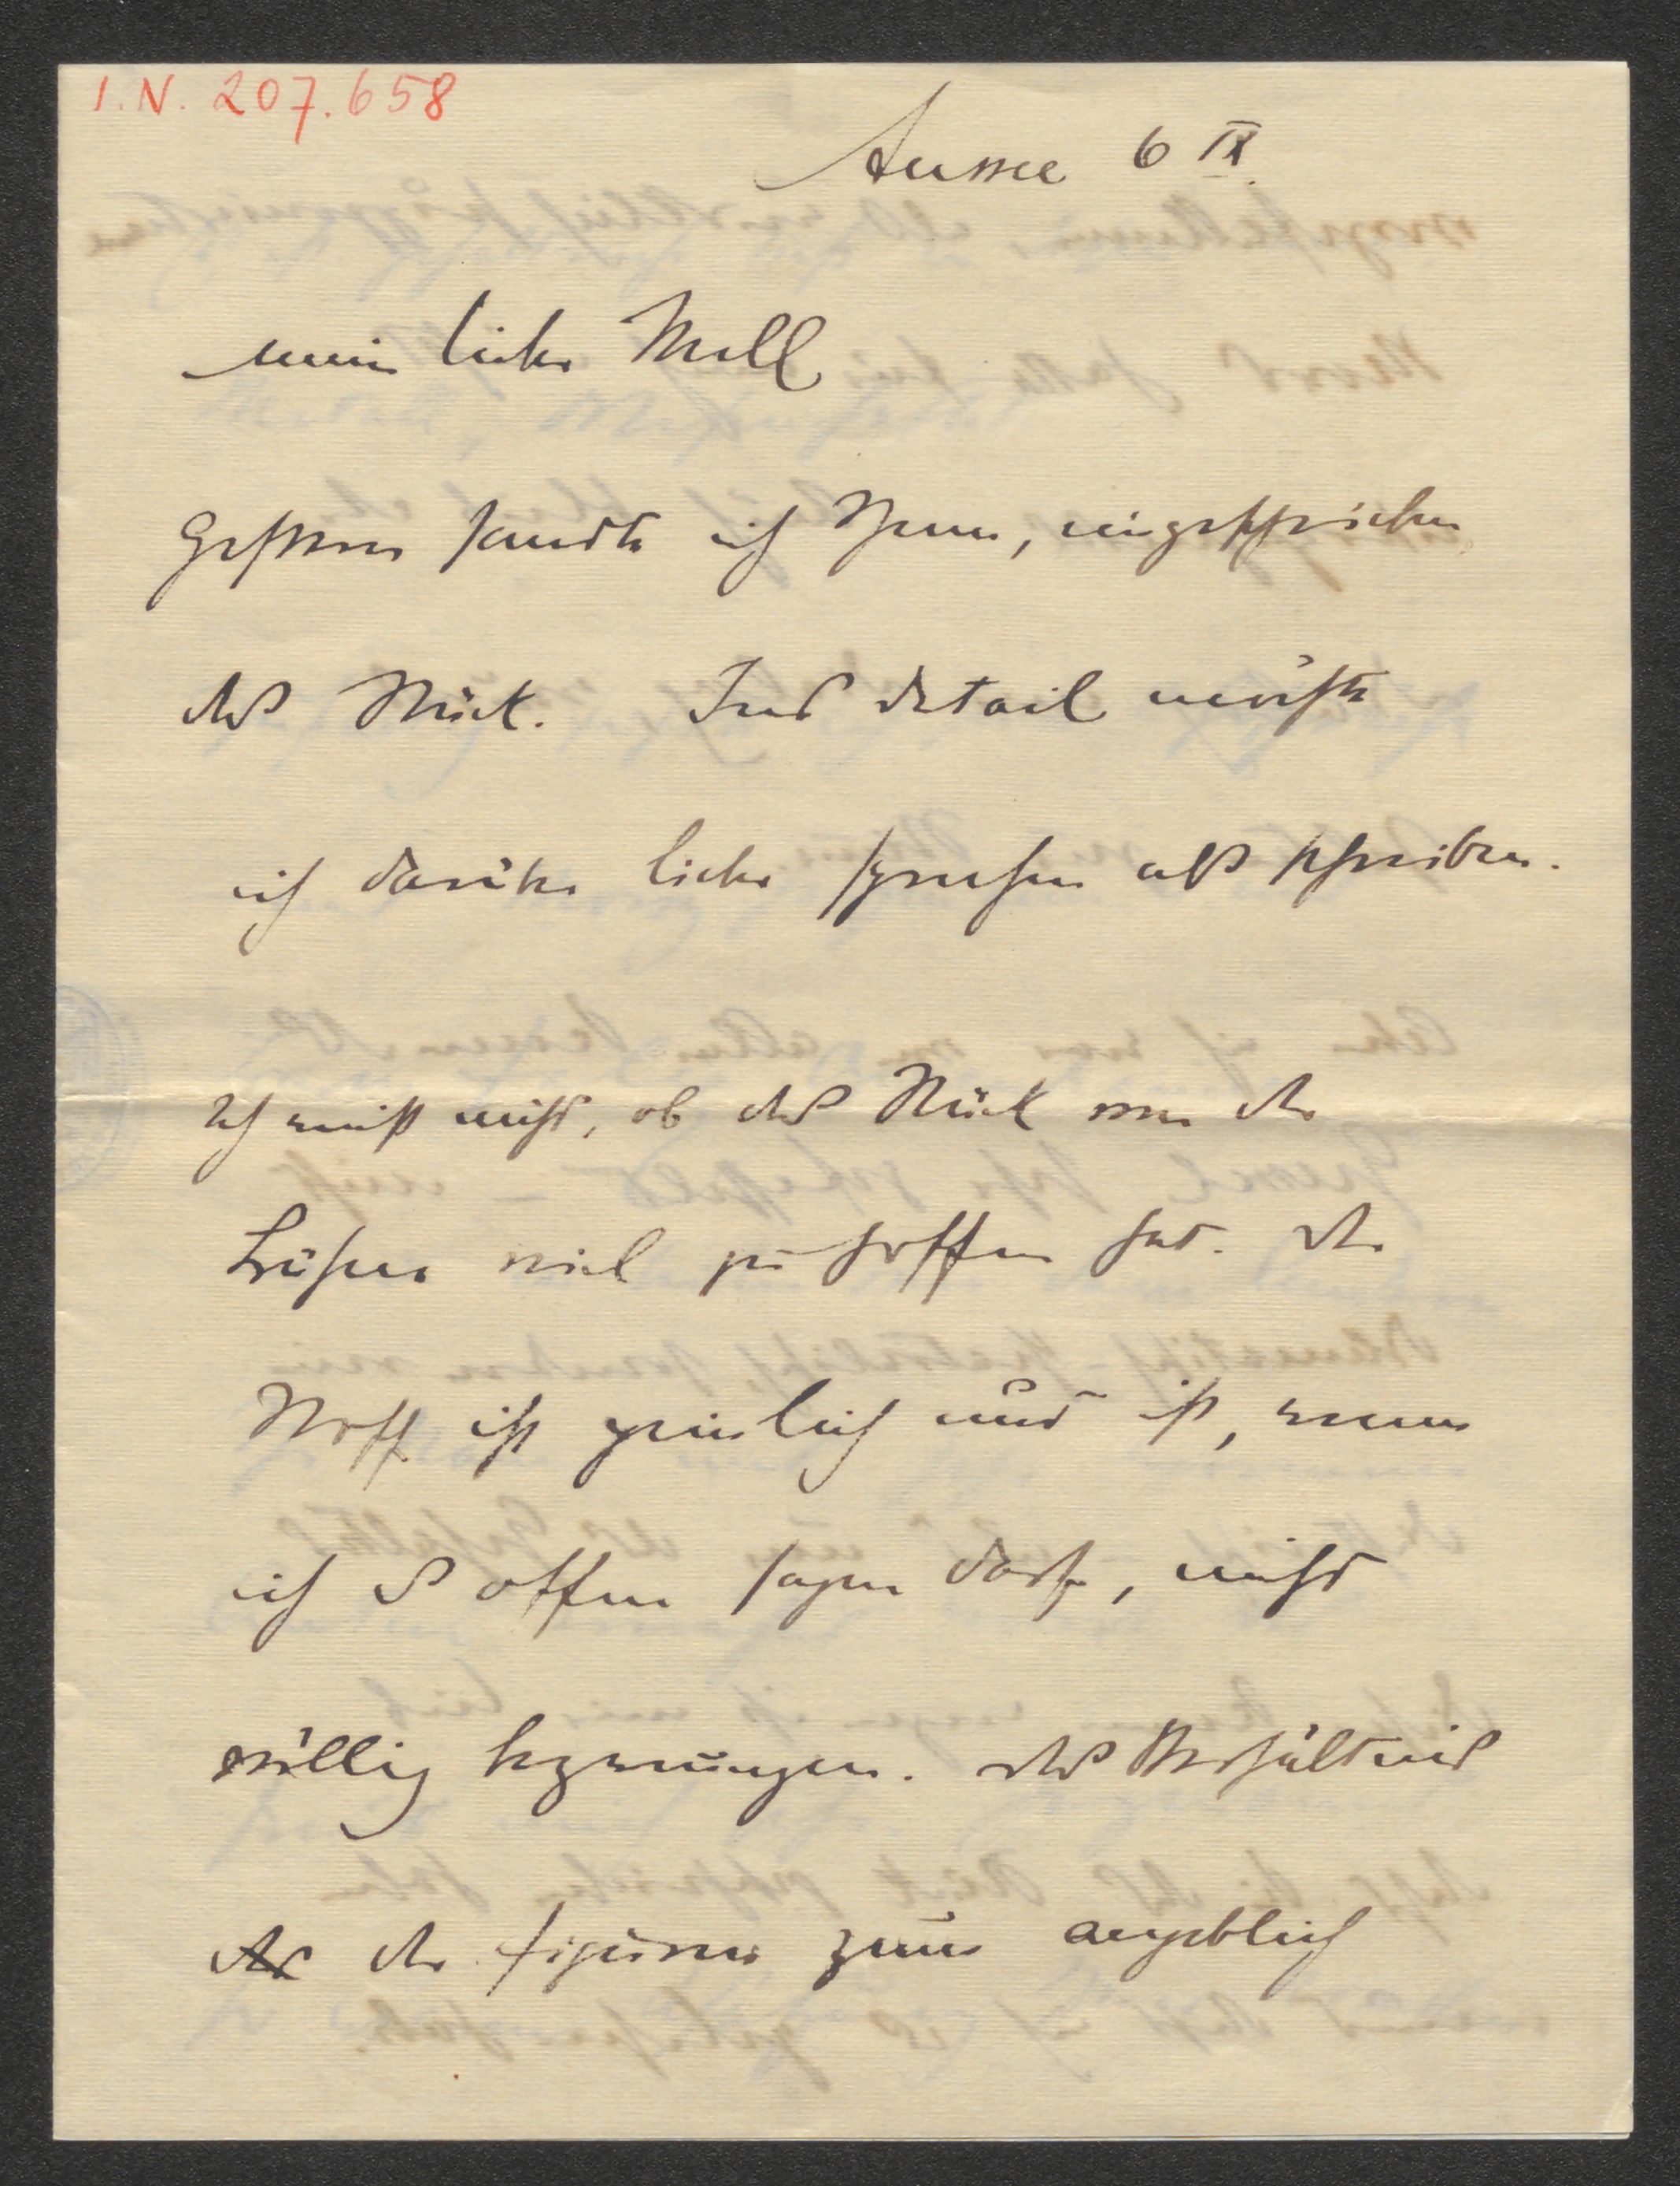 I.N. 207.658
Aussee 6 IX.
mein lieber Mell
gestern sandte ich Ihnen, eingeschrieben
das Stück. Ins detail möchte
ich darüber lieber sprechen als schreiben.
Ich weiß nicht, ob das Stück von der
Bühne viel zu hoffen hat. Der
Stoff ist peinlich und ist, wenn
ich es offen sagen darf, nicht
völlig bezwungen. Das Verhältnis
der Figuren zum angeblich